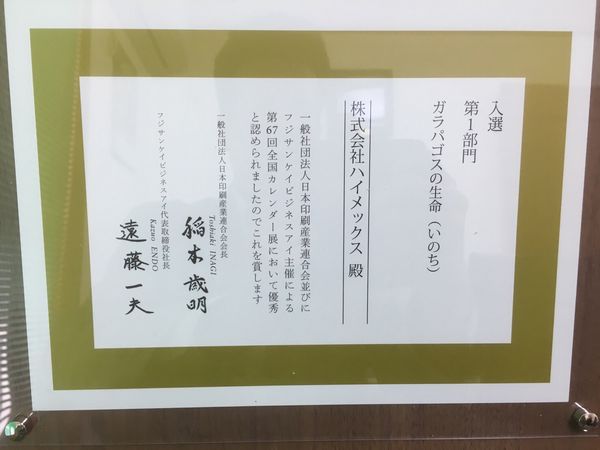 入選
第1部門
ガラパゴスの生命（いのち）
株式会社ハイメックス 殿
一般社団法人日本印刷産業連合会並びに
フジサンケイビジネスアイ主催による
第67回全国カレンダー展において優秀
と認められましたのでこれを賞します
一般社団法人日本印刷産業連合会会長
Toshiaki INAGI
稲木歳明
フジサンケイビジネスアイ代表取締役社長
Kazuo ENDO
遠藤一夫